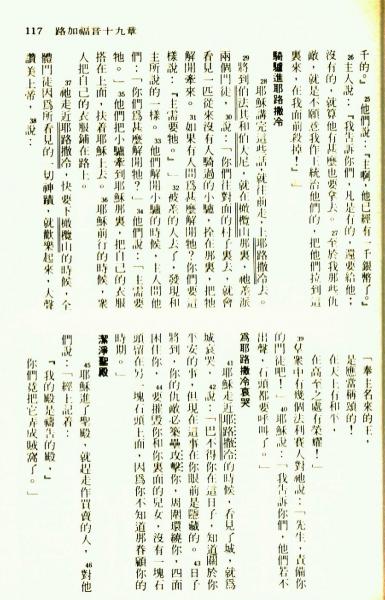 117 路加福音十九章
千的。』25他們說:『主啊,他已經有一千銀幣了。』
26主人說:『我告訴你們,凡是有的,還要給他;
沒有的,就算他有甚麼也要拿去。27至於我那些仇
敵,就是不願意我作王統治他們的,把他們拉到這
裏來,在我面前殺掉!』」
騎驢進耶路撒冷
28耶穌講完這些話,就往前走,上耶路撒冷去。
29將到伯法其和伯大尼,就在橄欖山那裏,祂差派
兩個門徒,30說:「你們往對面的村子裏去,就會
看見一匹從來沒有人騎過的小驢,拴在那裏,把牠
解開牽來。31如果有人問爲甚麼解牠?你們要這
樣說:『主需要牠。』」32被差的人去了,發現和
主所說的一樣。33他們解開小驢的時候,主人問他
們:「你們爲甚麼解開牠?」34他們說:「主需要
牠。」35他們把小驢牽到耶穌那裏,把自己的衣服
搭在上面,扶着耶穌上去。36耶穌前行的時候,衆
人把自己的衣服鋪在路上。
37祂走近耶路撒冷,快要下橄欖山的時候,全
體門徒因爲所看見的一切神蹟,就歡樂起來,大聲
讚美上帝,38說:
「奉主名來的王,
是應當稱頌的!
在天上有和平,
在高至之處有榮耀!」
39羣衆中有幾個法利賽人對祂說:「先生,責備你
的門徒吧!」40耶穌說:「我告訴你們,他們若不
出聲,石頭都要呼叫了。」
爲耶路撒冷哀哭
41耶穌走近耶路撒冷的時候,看見了城,就爲
城哀哭,42說:「巴不得你在這日子,知道關於你
平安的事,但現在這事在你眼前是隱藏的。43日子
將到,你的仇敵必築壘攻擊你,周圍環繞你,四面
困住你,44要摧毀你和你裏面的兒女,沒有一塊石
頭留在另一塊石頭上面,因爲你不知道那眷顧你的
時期。」
潔淨聖殿
45耶穌進了聖殿,就趕走作買賣的人,46對他
們說:「經上記着:
『我的殿是禱吿的殿,』
你們竟把它弄成賊窩了。」